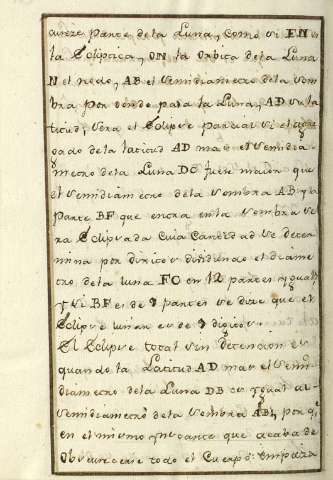 cureze parte de la Luna, como si EN es
la Ecliptica, ON la orbita de la Luna
N el nodo, AB el semidiametro de la som
bra por donde pasa la Luna, AD su la
titud, sera el Eclipse parcial si el
gado de la latitud AD mas el semidia
metro de la Luna DC fuere maior que
el semidiametro de la sombra AB y la
parte BF que entra en la sombra se
ra Eclipsada cuia cantidad se deter
mina por digitos dividiendo el diame
tro de la luna FC en 12 partes yguales
y si BF es de 9 partes se dize que el
Eclipse lunar es de 9 digitos.
El Eclipse total sin detencion es
quando la Latitud AD mas el semi
diametro de la Luna DB es ygual al
semidiametro de la sombra AB, por q.e
en el mismo ynstante que acaba de
obscurecerse todo el Cuerpo empieza